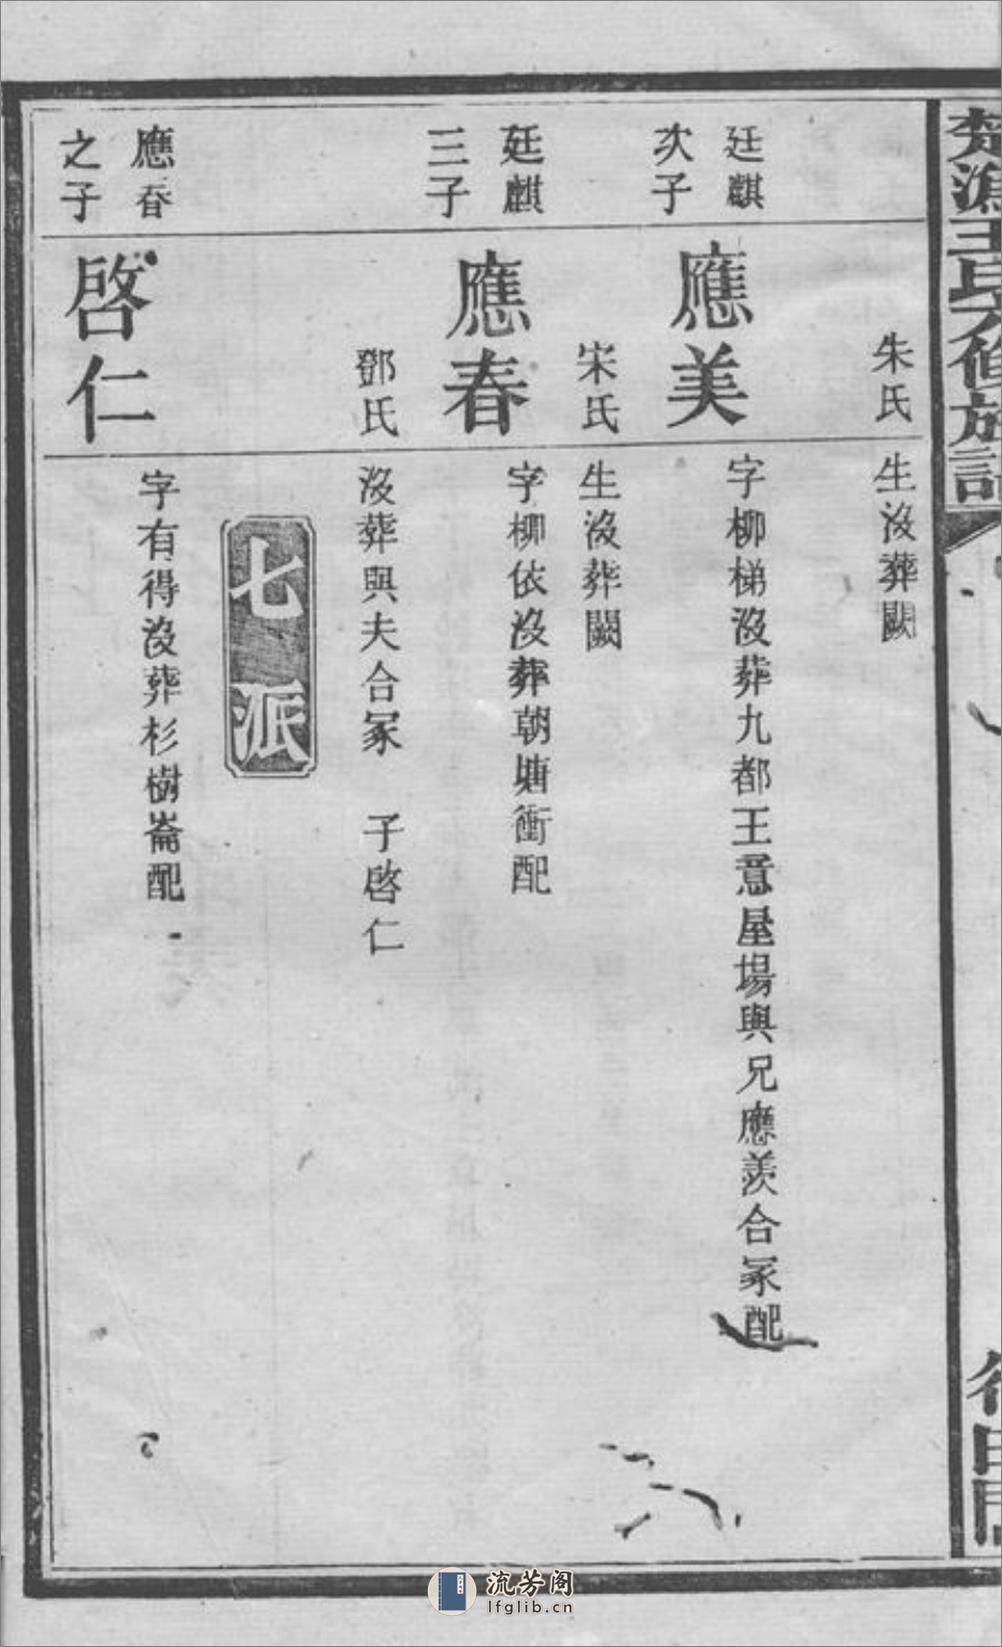 王氏
修族
朱氏
生沒葬闕
廷麒
次子
應美
字柳梯沒葬九都王意屋場與兄應羡合冢配
宋氏
生沒葬闕
廷麒
三子
應春
字柳依沒葬朝塘衝配
鄧氏
沒葬與夫合冢 子啓仁
七派
應春
之子
啓仁
字有得沒葬杉樹崙配
流芳阁
lfglib.cn